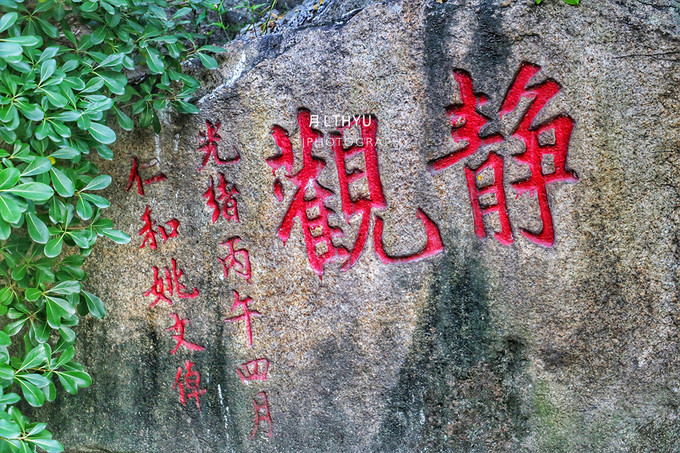 静觀
光緒丙午四月
仁和姚文倬
月LTHYU
PHOTOGRAPHY